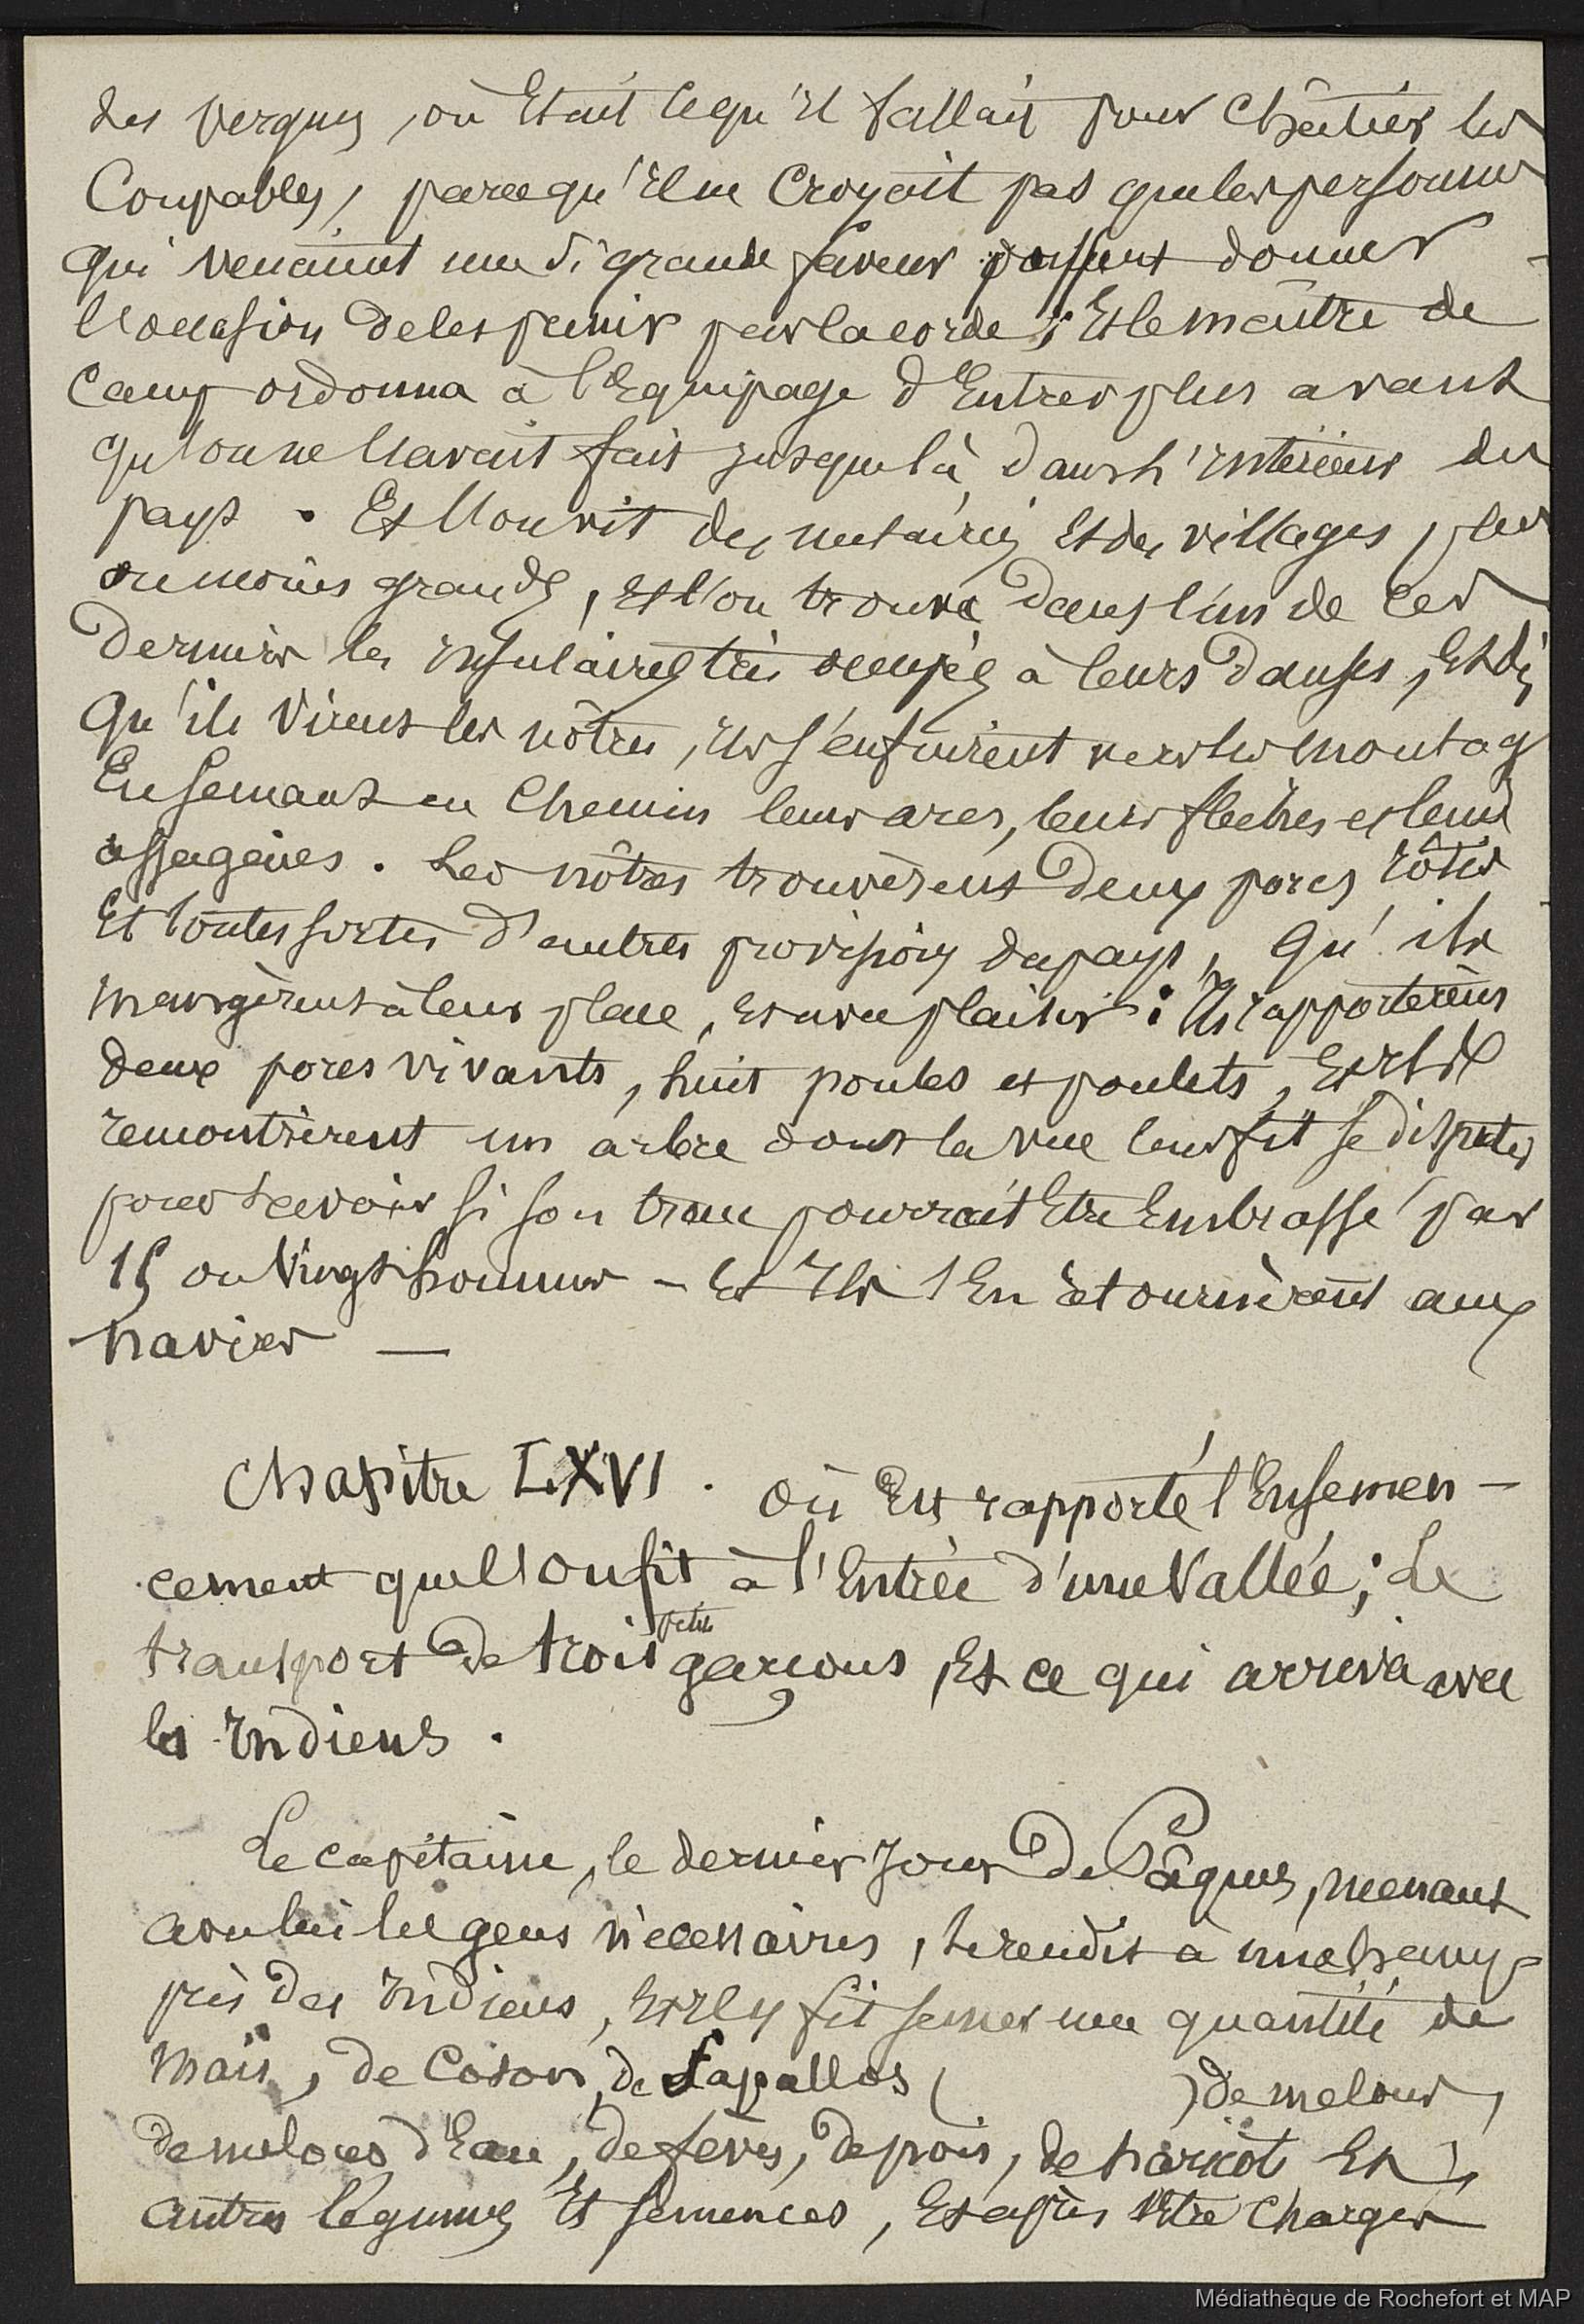 des vergues, où Etait ce qu'il fallait pour Châtier les
Coupables, parce qu'il ne Croyait pas que les personnes
qui venaient une si grande faveur puissent donner
l'occasion de les punir par la corde ; Et le maître de
Camp ordonna à l'Equipage d'Entrer plus avant
qu'on ne l'avait fait jusque là, dans l'intérieur du
pays . Et l'on vit des métairies Et des villages plus
ou moins grands, Et l'on trouva dans l'un de ces
derniers les insulaires très occupés à leurs danses, Et dès
Qu'ils Virent les nôtres, ils s'enfuirent vers les montag
En semant en Chemin leurs arcs, leurs flèches et leurs
assagaies . Les nôtres trouvèrent deux porcs rôtis
Et toutes sortes d'autres provisions du pays, Qu'ils
mangèrent à leur place, et avec plaisir : Ils rapportèrent
deux porcs vivants, huit poules et poulets, Et ils
remontrèrent un arbre dont la vue leur fit se disputer
pour savoir si son tronc pourrait Etre Embrassé par
15 ou Vingt hommes – Et Ils s'En retournèrent aux
navires —
Chapitre LXVI . où Est rapporté l'Ensemen –
cement que l'on fit à l'Entrée d'une Vallée ; Le
transport de trois petits garçons, Et ce qui arriva avec
les Indiens .
Le capitaine, le dernier jour de Pâques, menant
avec lui les gens nécessaires, se rendit à un champ
près des Indiens, Et il y fit semer une quantité de
Maïs, de Coton, de Sapallos ( ) de melons,
de melons d'Eau, de fèves, de pois, de haricot Et
autres légumes Et semences, Et après s'Etre Chargés
Médiathèque de Rochefort et MAP